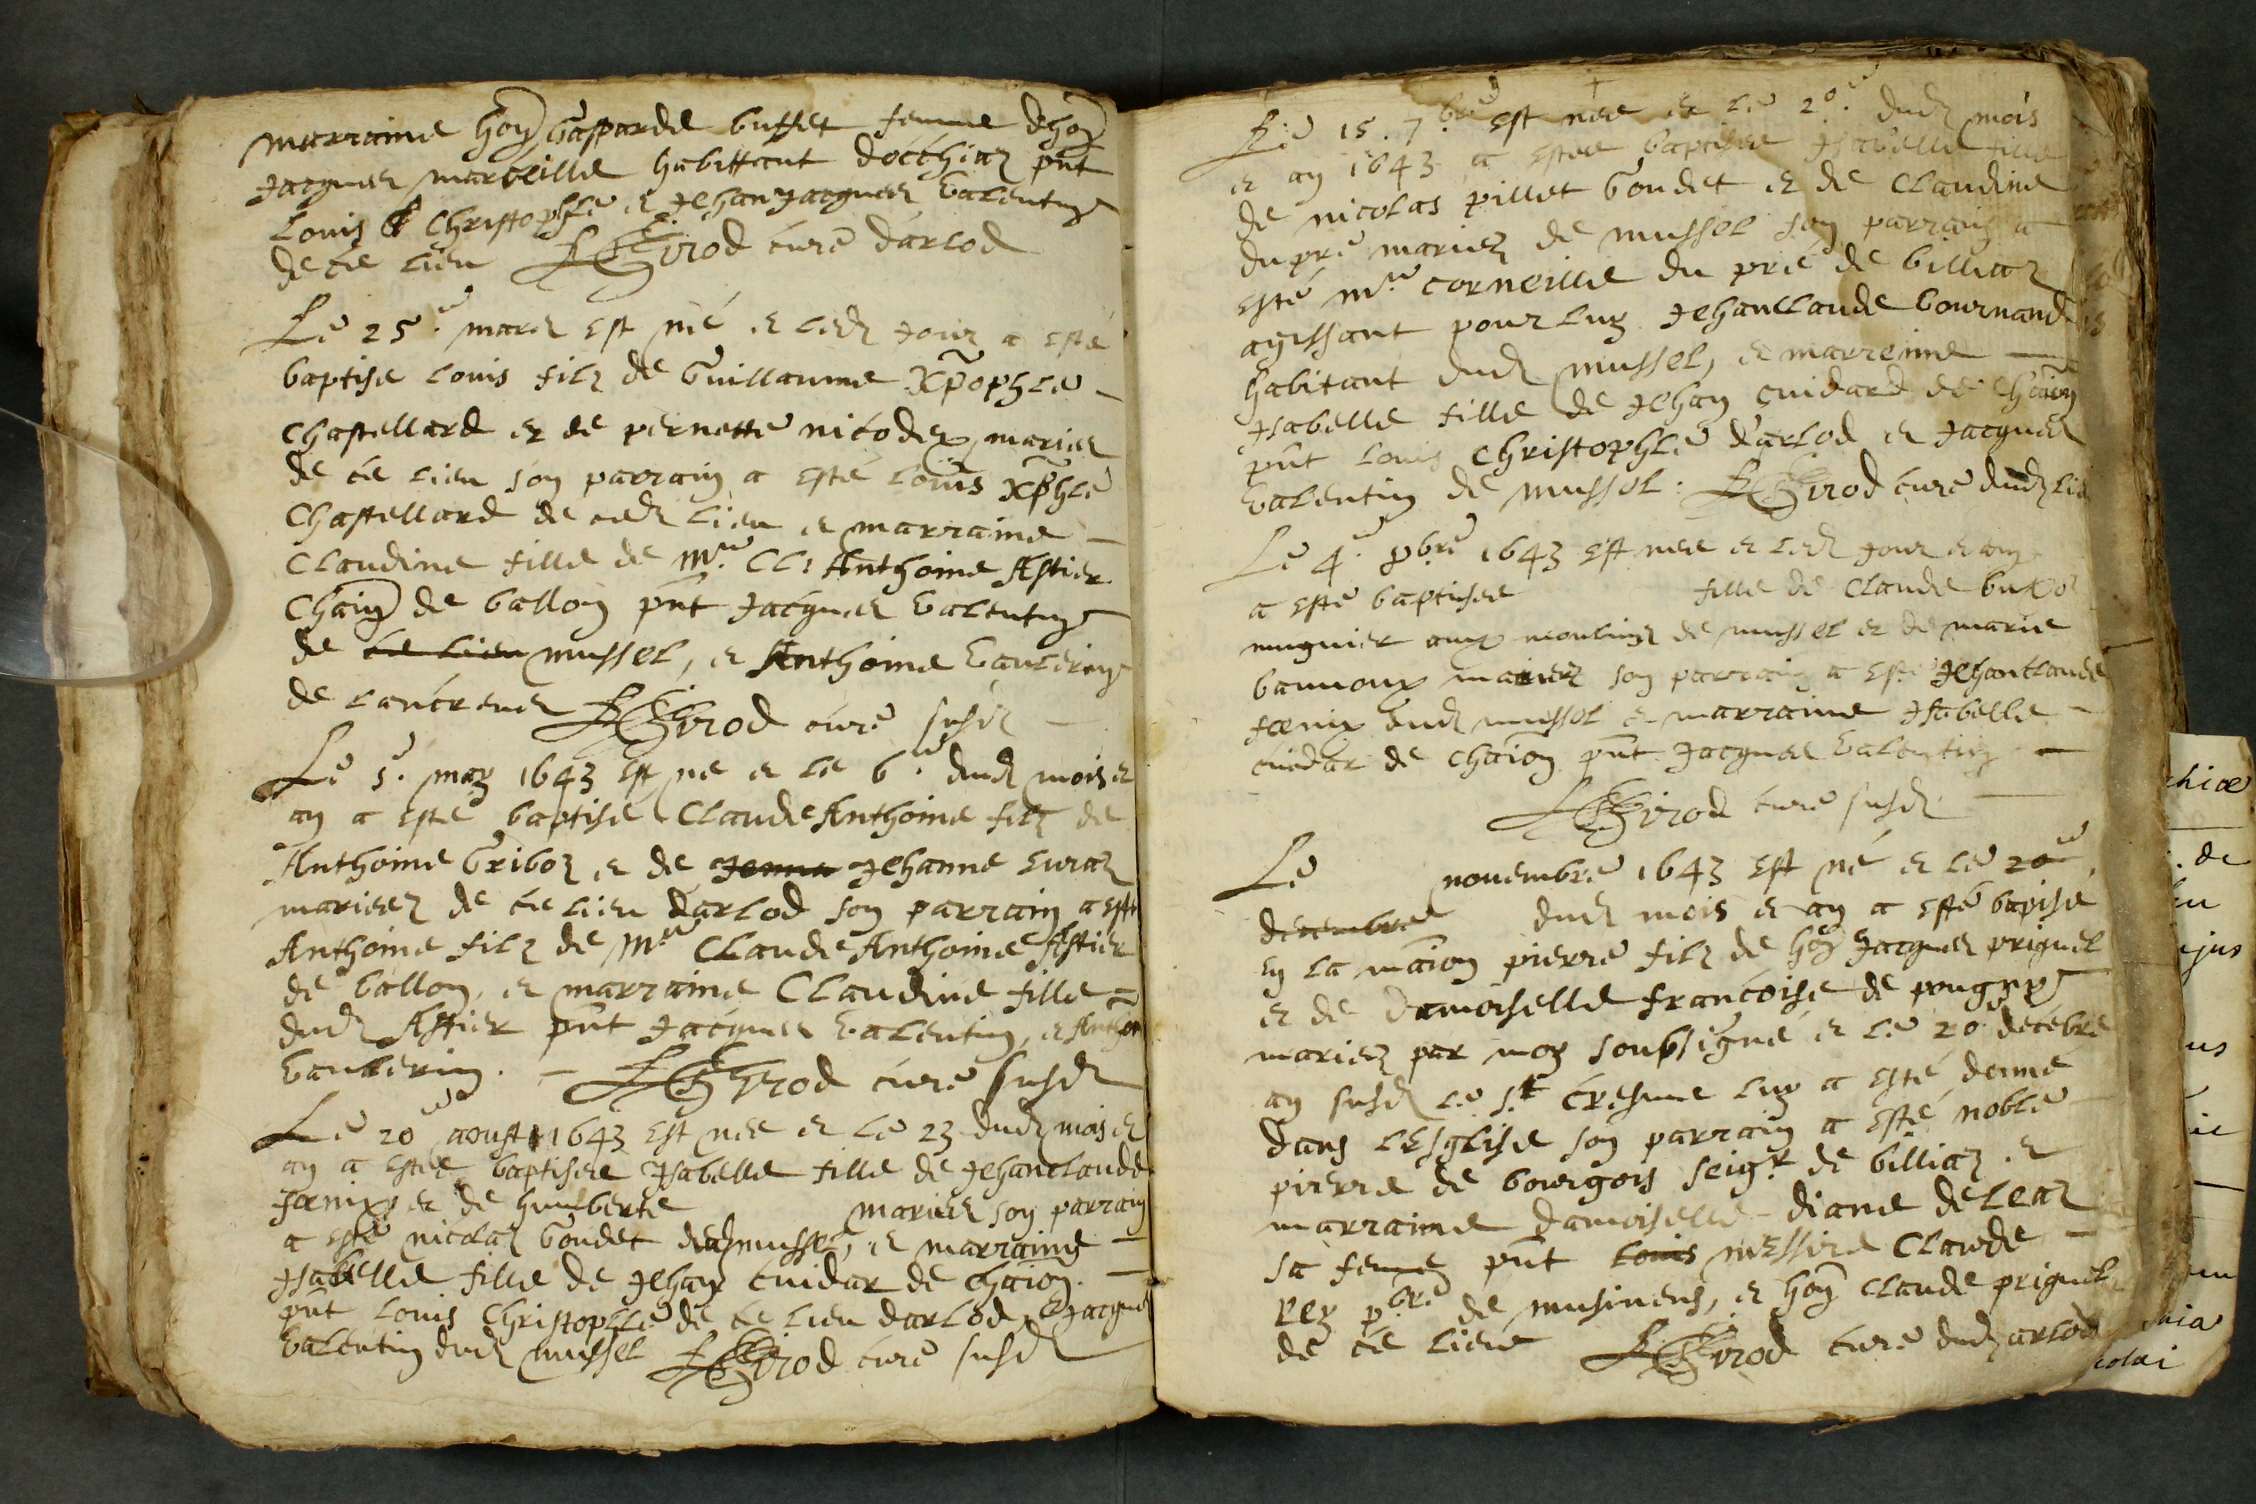 marraine hon̄ Gasparde buffet femme d'hon̄
Jacques marveille habittant docthiaz pn̄t
Louis Christophle et Jehan Jacques Valentin
de ce lieu Girod curé darlod
Le 25e mars est né et ledt jour a esté
baptisé Louis filz de Guillaume Xp̄ophle
Chastellard et de pernette nicodex mariez
de ce lieu son parrain a esté Louis Xp̄hle
Chastellard de cedt lieu et marraine
Claudine fille de Mre Cl: Anthoine Astier
Chaīn de ballon pn̄t Jacques Valentin
de ce lieu mussel, et Anthoine Vaulerin
de Lancrenes Girod curé susdt
Le 5e may 1643 est né et le 6e dudt mois et
an a esté baptisé Claude Anthoine filz de
Anthoine Griboz et de Jenna Jehanne curaz
mariez de ce lieu darlod son parrain a esté
Anthoine filz de Mre Claude Anthoine Astier
de ballon, et marraine Claudine fille
dudt Astier pn̄t Jacques Valentin, et Anthon
Vaulerin. Girod curé susdt
Le 20e aoust 1643 est nee et le 23 dudt mois et
an a estée baptisée Ysabelle fille de Jehanclaude
foenix et de humberte mariez son parrain
a esté nicolas Goudet dudt mussel, et marraine
Isabelle fille de Jehan cuidar de chaion.
pn̄t Louis Christophle de ce lieu darlod, et Jacques
Valentin dudt mussel Girod curé susdt
Le 15. 7bre est nee et le 20e dudt mois
et an 1643 a estee baptisée Isabelle fille
de nicolas pillet Goudet et de Claudine
dupré mariez de mussel son parrain a
esté Mre corneille du pré de billiaz
agissant pour luy Jehanclaude bournand
habitant dudt mussel, et marreinne
Isabelle fille de Jehan cuidard de Chaion
pn̄t Louis Christophle d'arlod et Jacques
Valentin de mussel: Girod curé dudt lie
Le 4e 9bre 1643 est nee et ledt jour et an
a esté baptisee fille de Claude
mugnier aux moulins de mussel et de marie
bauuoux mariez son parrain a esté Jehanclaude
foenix dudt mussel et marraine Isabelle
cuidar de chaion pn̄t Jacques Valentin
Girod curé susdt
Le nouembre 1643 est né et le 20e
decembre dudt mois et an a esté bapisé
en la maīon pierre filz de hon̄ Jacques priquel
et de Damoiselle francoise de pougny
mariez par moy soubsigné et le 20 decēbre
an susdt le st cresme luy a esté donné
dans l'Esglise son parrain a esté noble
pierre de bourgois seigr de billiaz et
marraine damoiselle diane deleaz
sa femme pn̄t Louis messire Claude
rey pbre de musinens, et hon̄ Claude priquel
de ce lieu Girod curé dudt arlod
chiæ
de
ejus
us
nia
colai